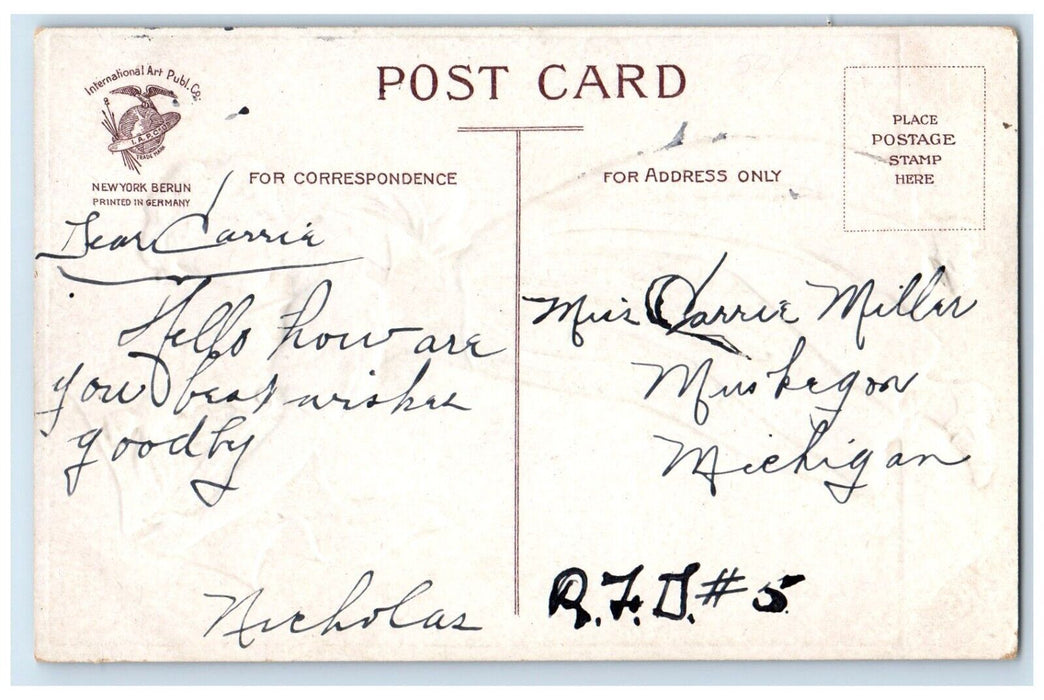 International Art Publ. Co.
I. A. P. Co.
TRADE MARK
NEW YORK BERLIN
PRINTED IN GERMANY
POST CARD
FOR CORRESPONDENCE
FOR ADDRESS ONLY
PLACE
POSTAGE
STAMP
HERE
Dear Carrie
Hello how are
you best wishes
goodby
Nicholas
Miss Carrie Miller
Muskegon
Michigan
R.F.D. # 5